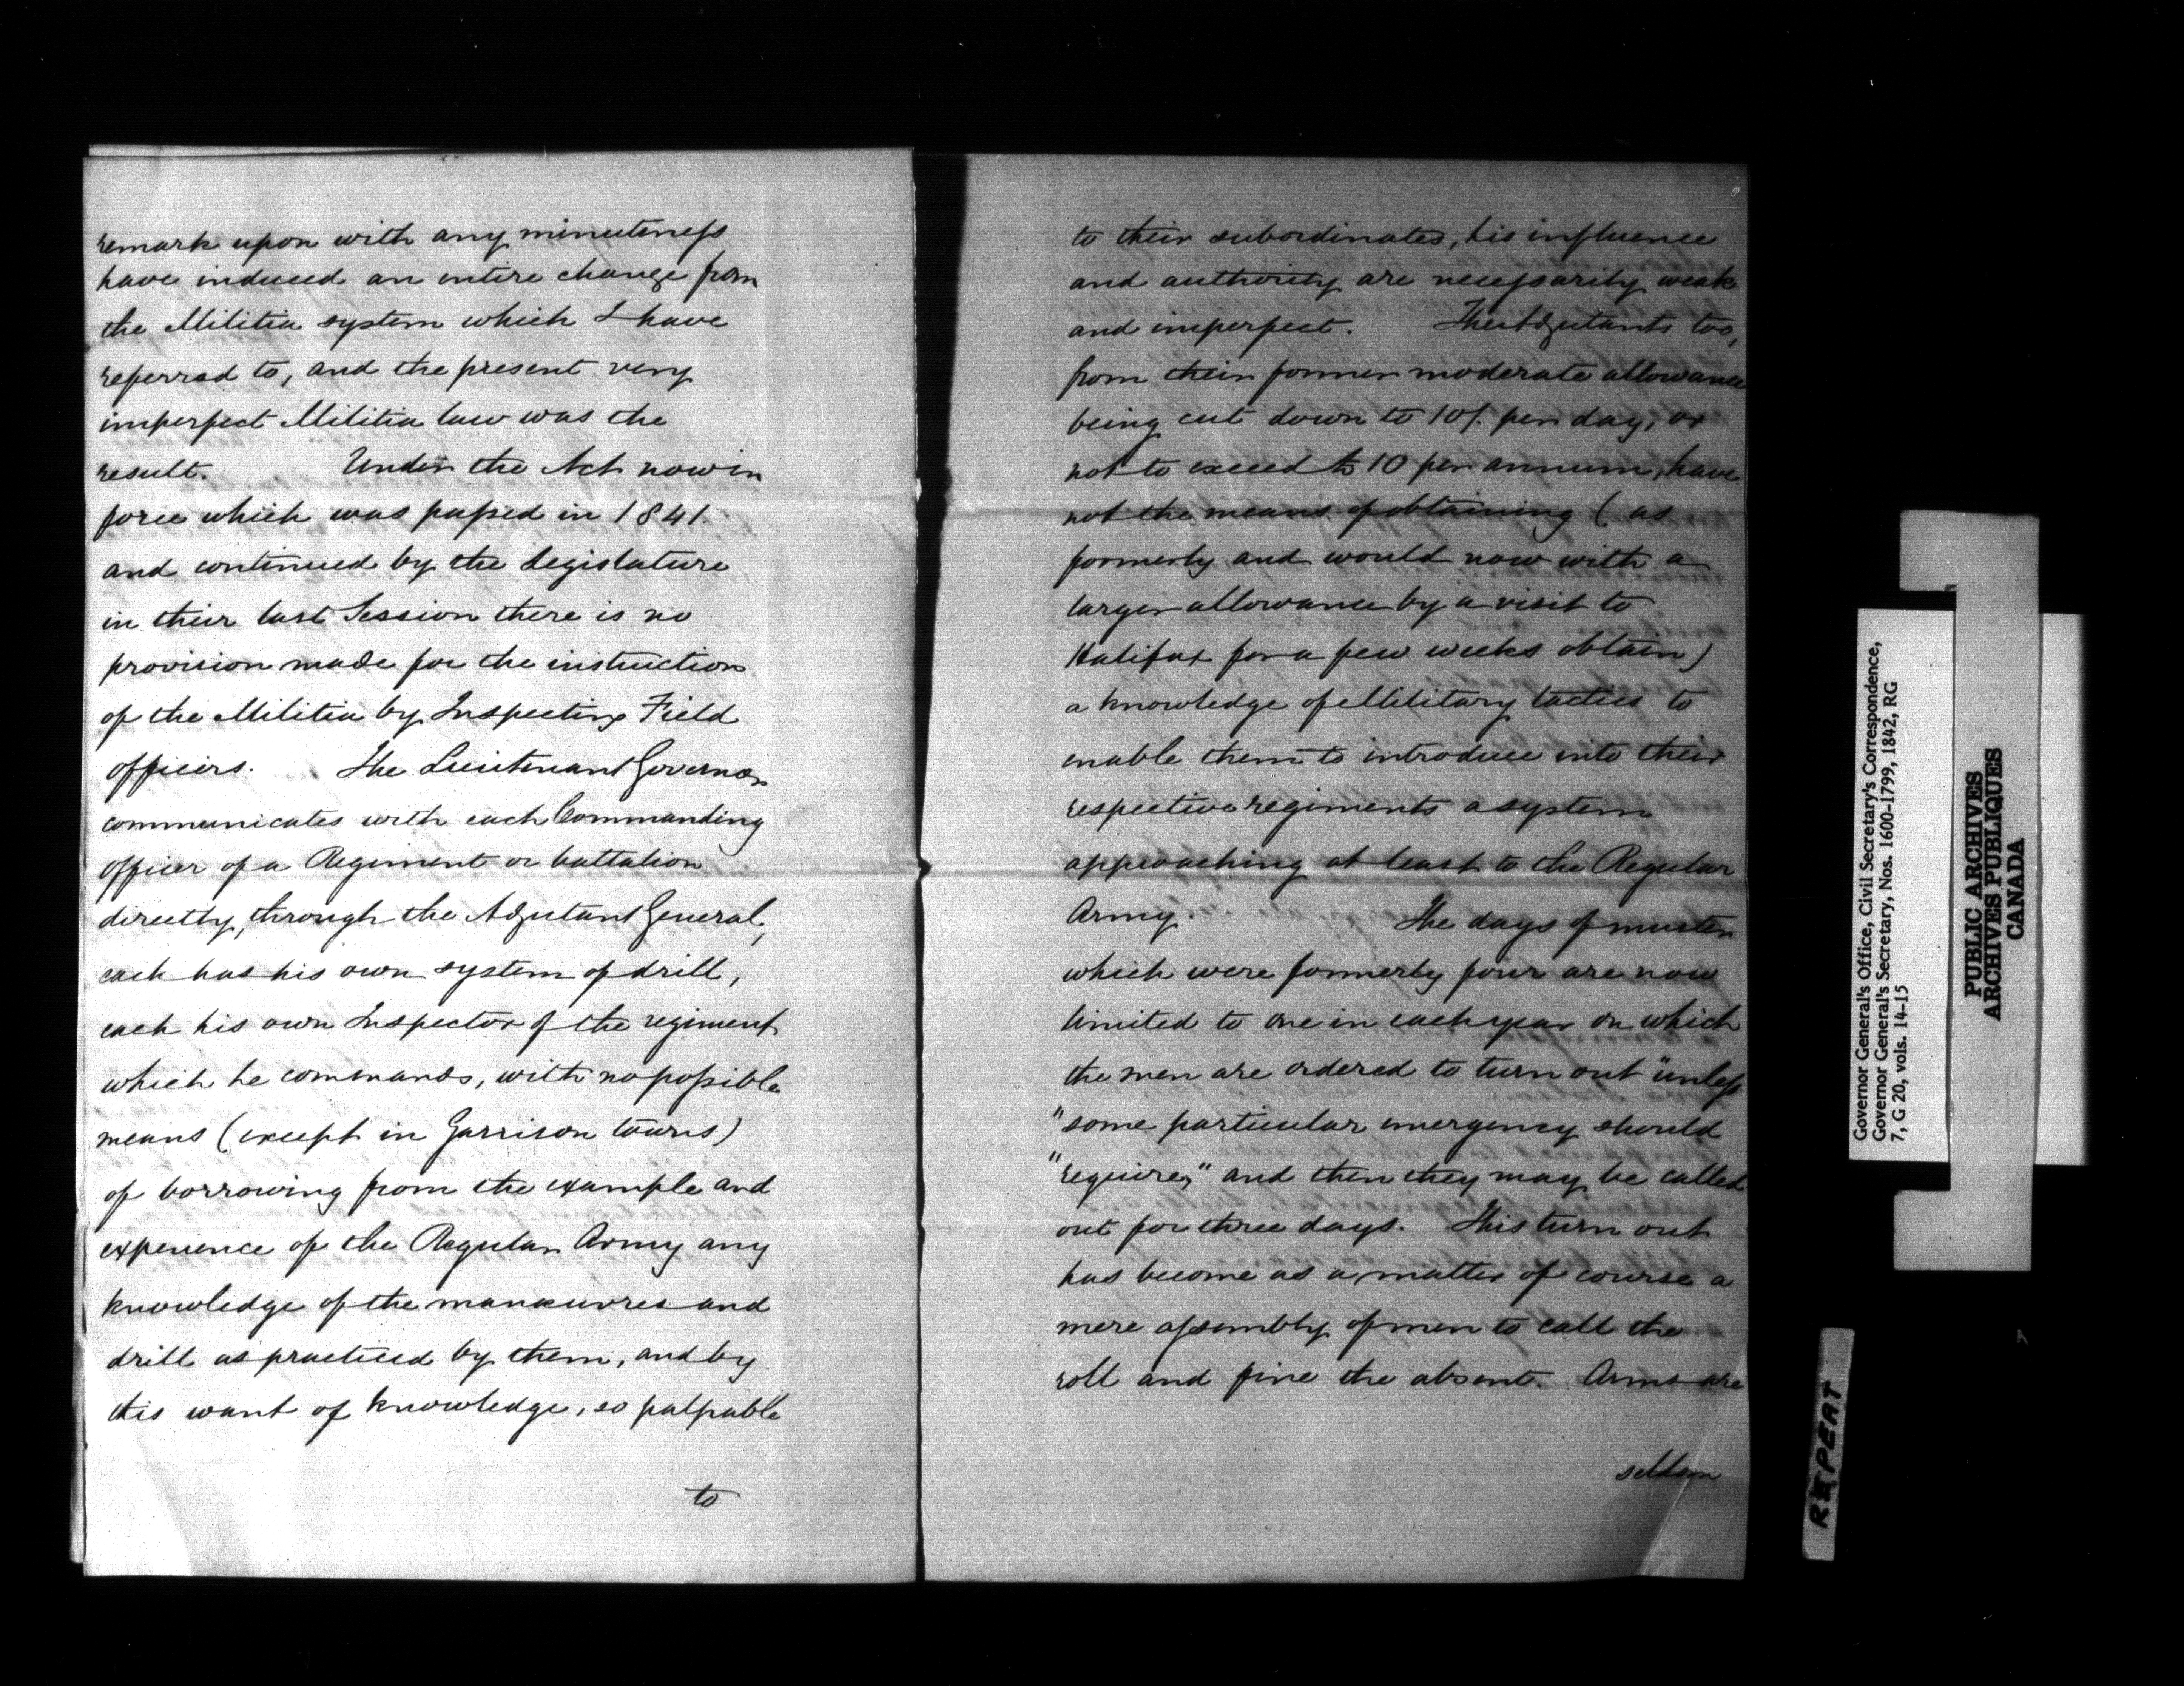 remark upon with any minuteness
have induced an entire change from
the Militia system which I have
referred to, and the present very
imperfect Militia law was the
result. Under the Act now in
force which was passed in 1841.
and continued by the Legislature
in their last Session there is no
provision made for the instruction
of the Militia by Inspecting Field
officers. The Lieutenant Governor
communicates with each Commanding
Officer of a Regiment or battalion
directly, through the Adjutant General,
each has his own system of drill,
each his own Inspector of the regiment
which he commands, with no possible
means (except in Garrison towns)
of borrowing from the example and
experience of the Regular Army any
knowledge of the manœuvres and
drill as practiced by them, and by
this want of knowledge, so palpable
to
to their subordinates, his influence
and authority are necessarily weak
and imperfect. The Adjutants too,
from their former moderate allowance
being cut down to 10/. per day, or
not to exceed £10 per annum, have
not the means of obtaining (as
formerly and would now with a
larger allowance by a visit to
Halifax for a few weeks obtain)
a knowledge of Military tactics to
enable them to introduce into their
respective regiments a system
approaching at least to the Regular
Army. The days of muster
which were formerly four are now
limited to one in each year on which
the men are ordered to turn out "unless
"some particular emergency should
"require," and then they may be called
out for three days. This turn out
has become as a matter of course a
mere assembly of men to call the
roll and fine the absent. Arms are
seldom
Governor General's Office, Civil Secretary's Correspondence,
Governor General's Secretary, Nos. 1600-1799, 1842, RG
7, G 20, vols. 14-15
PUBLIC ARCHIVES
ARCHIVES PUBLIQUES
CANADA
REPEAT